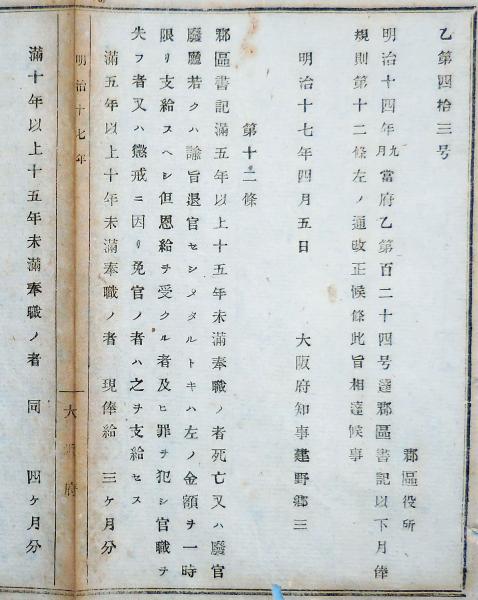 乙第四拾三号
郡區役所
明治十四年九月當府乙第百二十四号達郡區書記以下月俸
規則第十二條左ノ通改正候條此旨相達候事
明治十七年四月五日
大阪府知事建野郷三
第十二條
郡區書記滿五年以上十五年未滿奉職ノ者死亡又ハ廢官
廢廳若クハ諭旨退官セシメタルトキハ左ノ金額ヲ一時
限リ支給スヘシ但恩給ヲ受クル者及ヒ罪ヲ犯シ官職ヲ
失フ者又ハ懲戒ニ因リ免官ノ者ハ之ヲ支給セス
滿五年以上十年未滿奉職ノ者 現俸給 三ケ月分
明治十七年
大阪府
滿十年以上十五年未滿奉職ノ者 同 四ケ月分